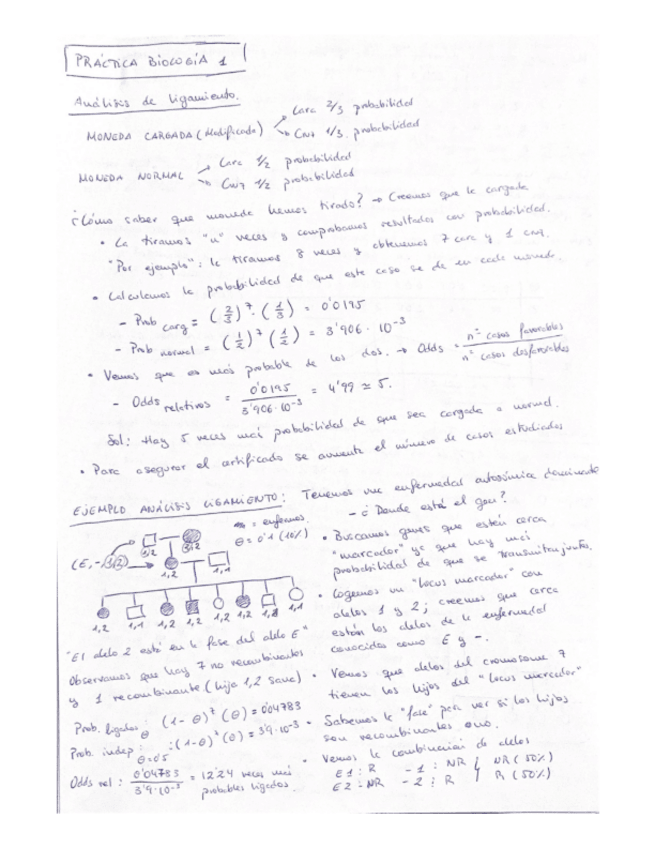 PRÁCTICA BIOLOGÍA 1
Análisis de ligamiento.
MONEDA CARGADA (Modificada) → Cara 2/3 probabilidad
→ Cruz 1/3 probabilidad
MONEDA NORMAL → Cara 1/2 probabilidad
→ Cruz 1/2 probabilidad
¿Cómo saber que moneda hemos tirado? → Creemos que la cargada
• La tiramos "n" veces y comprobamos resultados con probabilidad.
"Por ejemplo": la tiramos 8 veces y obtenemos 7 cara y 1 cruz.
• Calculamos la probabilidad de que este caso se de en cada moneda.
- Prob carg = (2/3)^7 · (1/3) = 0'0195
- Prob normal = (1/2)^7 (1/2) = 3'906 · 10^-3
• Vemos que es más probable de los dos. → Odds = nº casos favorables / nº casos desfavorables
- Odds relativos = 0'0195 / 3'906·10^-3 = 4'99 ≃ 5.
Sol: Hay 5 veces más probabilidad de que sea cargada a normal.
• Para asegurar el certificado se aumenta el número de casos estudiados
EJEMPLO ANÁLISIS LIGAMIENTO: Tenemos una enfermedad autosómica dominante
- ¿Donde está el gen?
= enfermos
θ = 0'1 (10%)
(E, -, 1, 2)
1,2 2,2
1,2 1,1
1,2 1,1 1,2 1,2 1,2 1,2 1,1 1,1
• Buscamos genes que estén cerca
"marcador" ya que hay más
probabilidad de que se transmitan juntos.
• Cogemos un "locus marcador" con
alelos 1 y 2; creemos que cerca
están los alelos de la enfermedad
conocidos como E y -.
• Vemos que alelos del cromosoma 7
tienen los hijos del "locus marcador"
• Sabemos la "fase" para ver si los hijos
son recombinantes o no.
• Vemos la combinación de alelos
E1 : R - 1 : NR NR (50%)
E2 : NR - 2 : R R (50%)
"El alelo 2 está en la fase del alelo E"
Observamos que hay 7 no recombinantes
y 1 recombinante (hija 1,2 sana)
Prob. ligados: θ (1-θ)^7 (θ) = 0'04783
Prob. indep: θ=0'5 : (1-θ)^7 (θ) = 3'9·10^-3
Odds rel: 0'04783 / 3'9·10^-3 = 12'24 veces más
probables ligados.